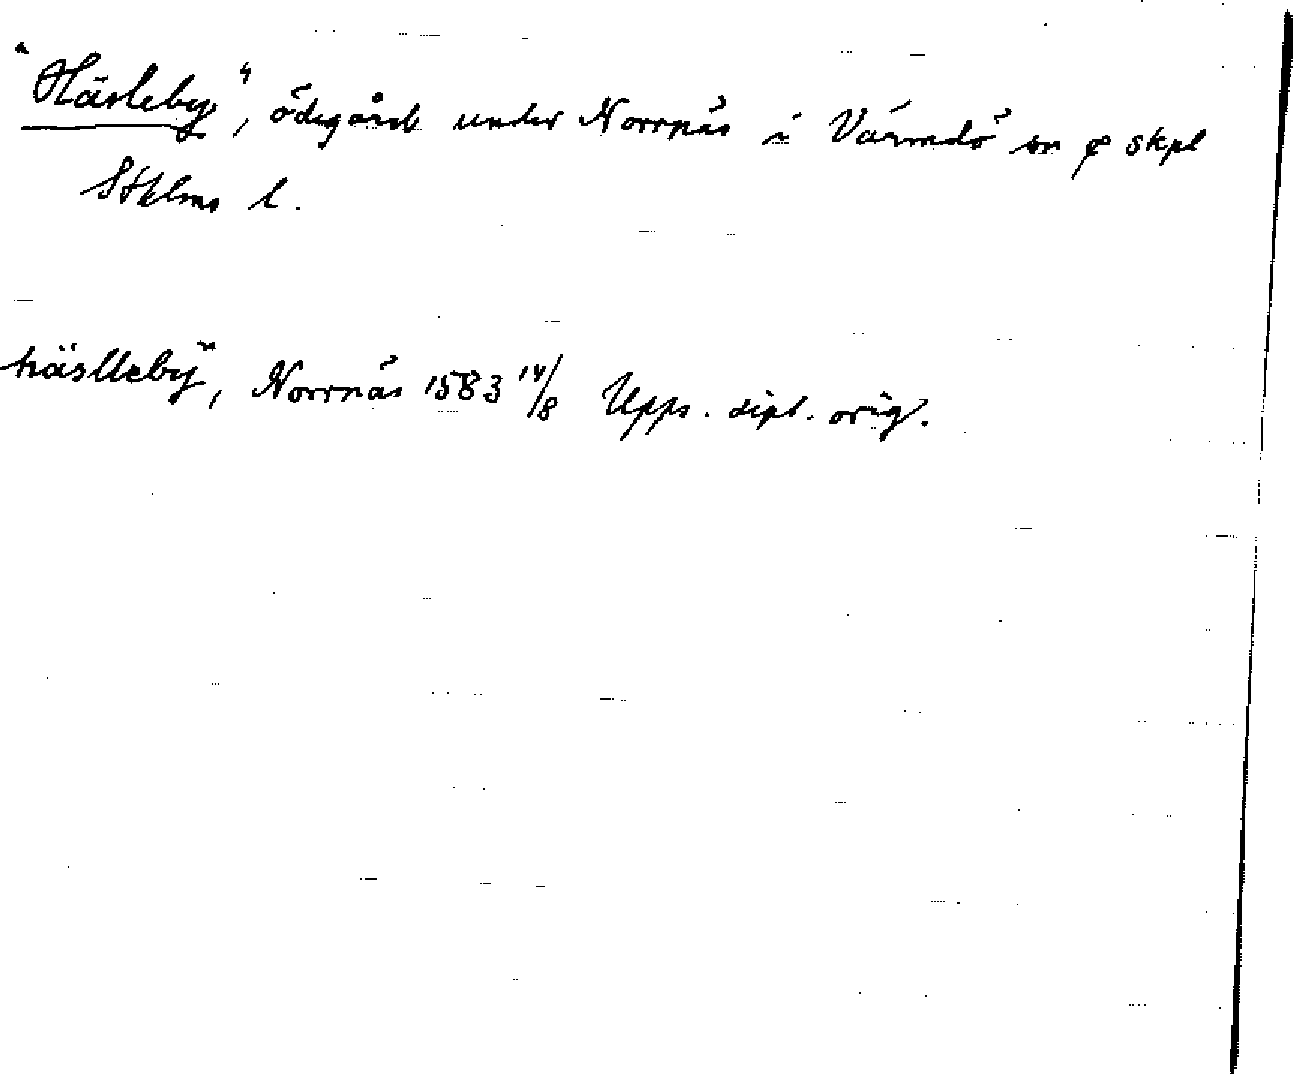 "Hässleby", ödegård under Norrnäs i Värmdö sn o skpl
Sthlms l.
hässlleby, Norrnäs 1583 14/8 Upps. dipl. orig.